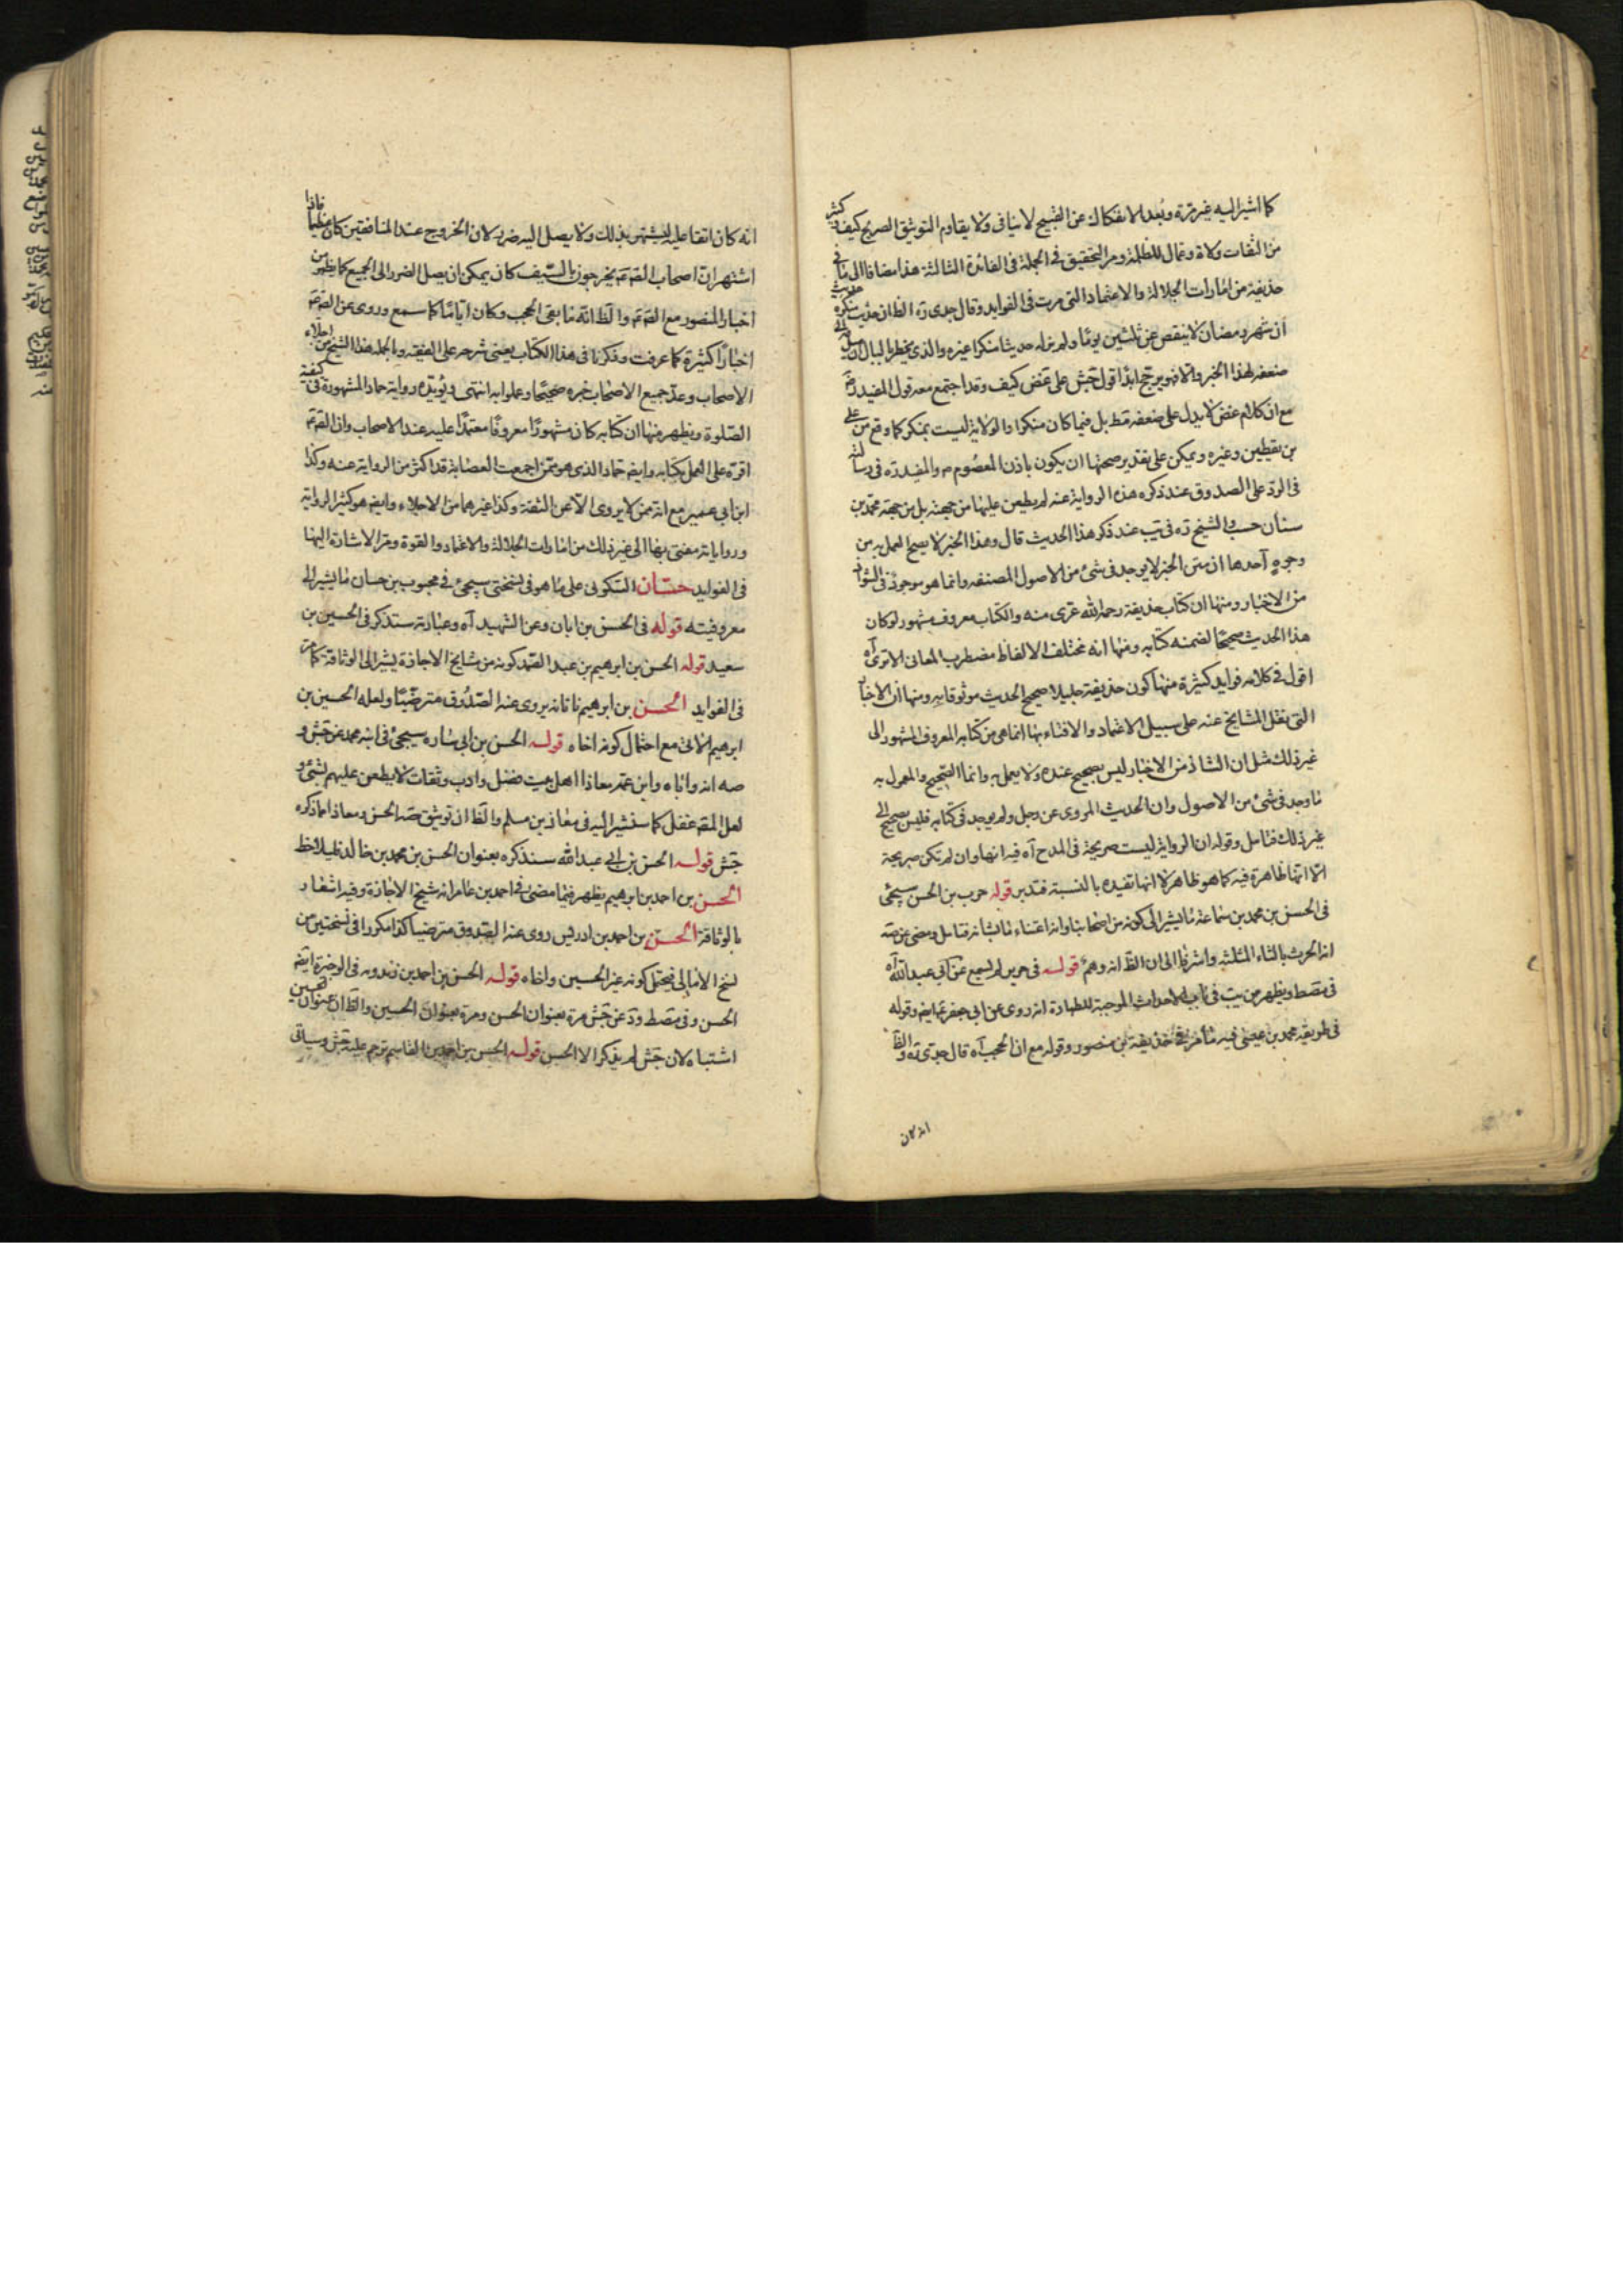 كما اشير اليه غير مرة وبُعد الانفكاك عن القبيح لا ينافى ولا يقاوم التوثيق الصريح كيف وكثير
من الثقات ولاة وعمال للظلمة ومر التحقيق فى الجملة فى الفائدة الثالثة هذا مضافا الى ما فى
حذيفة من امارات الجلالة والاعتماد التى مرت فى الفوايد وقال جدى ره الظ ان حديث منكره حديث
ان شهر رمضان لا ينقص عن ثلثين يوما ولم نر له حديثا منكرا غيره والذى يخطر بالبال ان
ضعفه لهذا الخبر والا فهو يرجح ابدا قول جش على غض كيف وقد اجتمع معه قول المفيد ره
مع ان كلام غض لا يدل على ضعفه قط بل فيما كان منكرا والولاية ليست بمنكر كما وقع من على
بن يقطين وغيره ويمكن على تقدير صحتها ان يكون باذن المعصوم م والمفيد ره فى رسالته
فى الرد على الصدوق عند ذكره هذه الرواية عنه لم يطعن عليها من جهته بل من جهة محمد بن
سنان حسب والشيخ ره فى يب عند ذكر هذا الحديث قال وهذا الخبر لا يصح العمل به من
وجوه آحدها ان متن الخبر لا يوجد فى شئ من الاصول المصنفه وانما هو موجود فى الشواذ
من الاخبار ومنها ان كتاب حذيفة رحمه الله عرى منه والكتاب معروف مشهور لوكان
هذا الحديث صحيحا لضمنه كتابه ومنها انه مختلف الالفاظ مضطرب المعانى الا ترى آه
اقول فى كلامه فوايد كثيرة منها كون حذيفة جليلا صحيح الحديث موثوقا به ومنها ان الاخبار
التى نقل المشايخ عنه على سبيل الاعتماد والافتاء بها انما هى من كتابه المعروف المشهور الى
غير ذلك مثل ان الشاذ من الاخبار ليس بصحيح عنده ولا يعمل به وانما الصحيح والمعمول به
ما وجد فى شئ من الاصول وان الحديث المروى عن رجل ولم يوجد فى كتابه فليس بصحيح الى
غير ذلك فتامل وقوله ان الرواية ليست صريحة فى المدح آه فيه انها وان لم تكن صريحة
الا انها ظاهرة فيه كما هو ظاهر لا انها تفيده بالنسبة فتدبر قوله حرب بن الحسن سيجئ
فى الحسن بن محمد بن سماعة ما يشير الى كونه من اصحابنا وانه اعتناء ما بشانه فتامل ومضى عن صه
انه الحرث بالثاء المثلثه واشرنا الى ان الظ انه وهم قوله فى حريز لم يسمع عن ابى عبد الله آه
فى مصط ويظهر من يب فى باب الاحداث الموجبة للطهارة انه روى عن ابى جعفر ع ايضا وقوله
فى طريقه محمد بن عيسى فيه ما مر فى حذيفة بن منصور وقوله مع ان الحجب آه قال جدى ره والظ
انه كان
انه كان اتقا عليه ليشتهر بذلك ولا يصل اليه ضرر لان الخروج عند المنافقين كان عظيما فاذا
اشتهر ان اصحاب الص ع يخرجون بالسيف كان يمكن ان يصل الضرر الى الجميع كما يظهر من
اخبار المنصور مع الص ع والظ انه ما بقى الحجب وكان اياما كما سمع وروى عن الص ع
اخبارا كثيرة كما عرفت وذكرنا فى هذا الكتاب يعنى شرحه على الفقيه وبالجمله هذا الشيخ من اجلاء
الاصحاب وعد جميع الاصحاب خبره صحيحا وعملوا به انتهى ويؤيده رواية حماد المشهورة فى كيفية
الصلوة ويظهر منها ان كتابه كان مشهورا معروفا معتمدا عليه عند الاصحاب وان الص ع
اقره على العمل بكتابه وايضا حماد الذى هو ممن اجمعت العصابة قد اكثر من الرواية عنه وكذا
ابن ابى عمير مع انه ممن لا يروى الا عن الثقة وكذا غيرهما من الاجلاء وايضا هو كثير الرواية
ورواياته معتنى بها الى غير ذلك من امارات الجلالة والاعتماد والقوة ومر الاشارة اليها
فى الفوايد حسان السكونى على ما هو فى نسختى سيجئ فى محبوب بن حسان ما يشير الى
معروفيته قوله فى الحسن بن ابان وعن الشهيد آه وعبارته ستذكر فى الحسين بن
سعيد قوله الحسن بن ابرهيم بن عبد الصمد كونه من مشايخ الاجازة يشير الى الوثاقة كما مر
فى الفوايد الحسن بن ابرهيم ناتانه يروى عنه الصدوق مترضيا ولعله الحسين بن
ابرهيم الاتى مع احتمال كونه اخاه قوله الحسن بن ابى ساره سيجئ فى ابنه محمد عن جش و
صه انه واباه وابن عمه معاذا اهل بيت فضل وادب وثقات لا يطعن عليهم بشئ و
لعل المص غفل كما سنشير اليه فى معاذ بن مسلم والظ ان توثيق صه الحسن ومعاذا ما ذكره
جش قوله الحسن بن ابى عبد الله سنذكره بعنوان الحسن بن محمد بن خالد فليلاحظ
الحسن بن احمد بن ابرهيم يظهر فيما مضى فى احمد بن عامر انه شيخ الاجازة وفيه اشعار
بالوثاقة الحسن بن احمد بن ادريس روى عنه الصدوق مترضيا كذا مكررا فى نسختين من
نسخ الامالى فيحتمل كونه غير الحسين واخاه قوله الحسن بن احمد بن زيدويه فى الوجيزة ايضا
الحسن وفى مصط ود عن جش مرة بعنوان الحسن ومرة بعنوان الحسين والظ ان عنوان الحسين
اشتباه لان جش لم يذكر الا الحسن قوله الحسن بن احمد بن القاسم ترحم عليه جش وسياتى